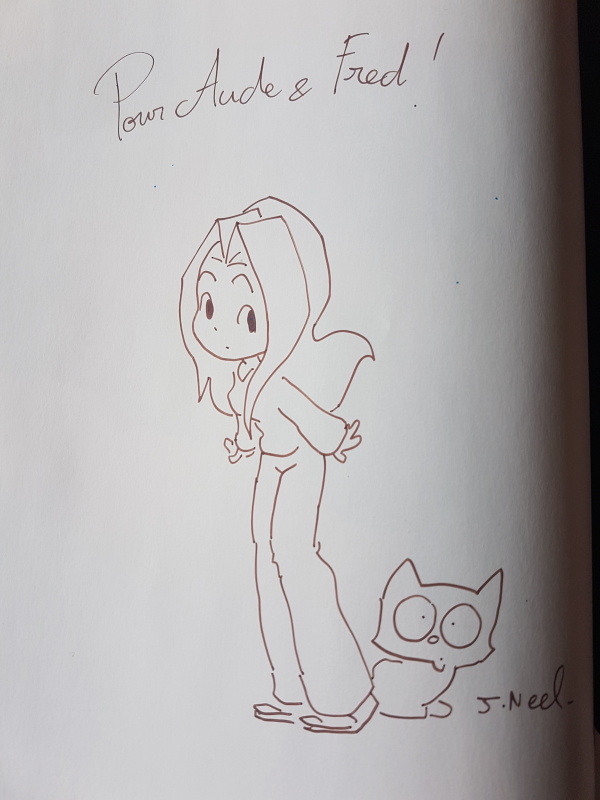 Pour Aude & Fred !
J. Neel.